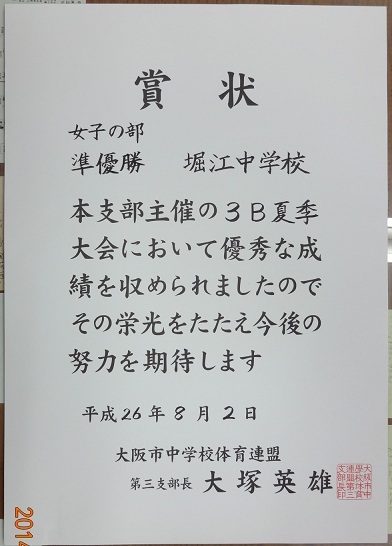 賞 状
女子の部
準優勝 堀江中学校
本支部主催の3B夏季
大会において優秀な成
績を収められましたので
その栄光をたたえ今後の
努力を期待します
平成26年8月2日
大阪市中学校体育連盟
第三支部長 大塚英雄